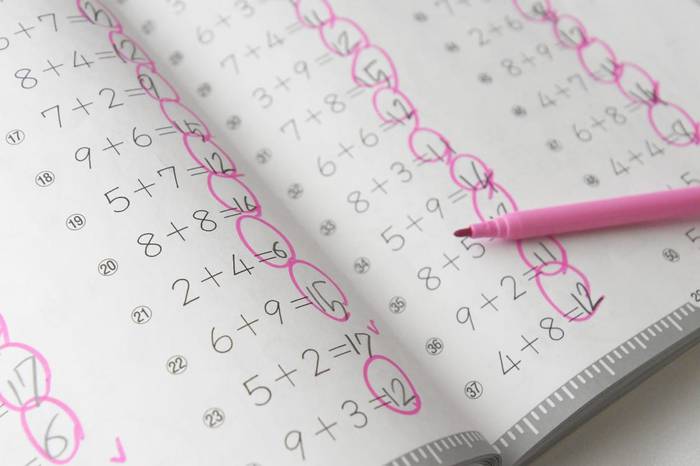 +7=
8+4=12
⑰ 7+2=9
⑱ 9+6=15
⑲ 5+7=12
⑳ 8+8=16
㉑ 2+4=6
㉒ 6+9=15
㉓ 5+2=17
9+3=12
17
6
6+3
7+4=11
㉚ 3+9=12
㉛ 7+8=15
㉜ 6+6=12
㉝ 8+3=11
㉞ 5+9=14
㉟ 8+5
㊱ 9+2=11
㊲ 4+8=12
7+
2+6=8
8+9=17
4+7=11
6+8=14
4+4=8
㊿ 5